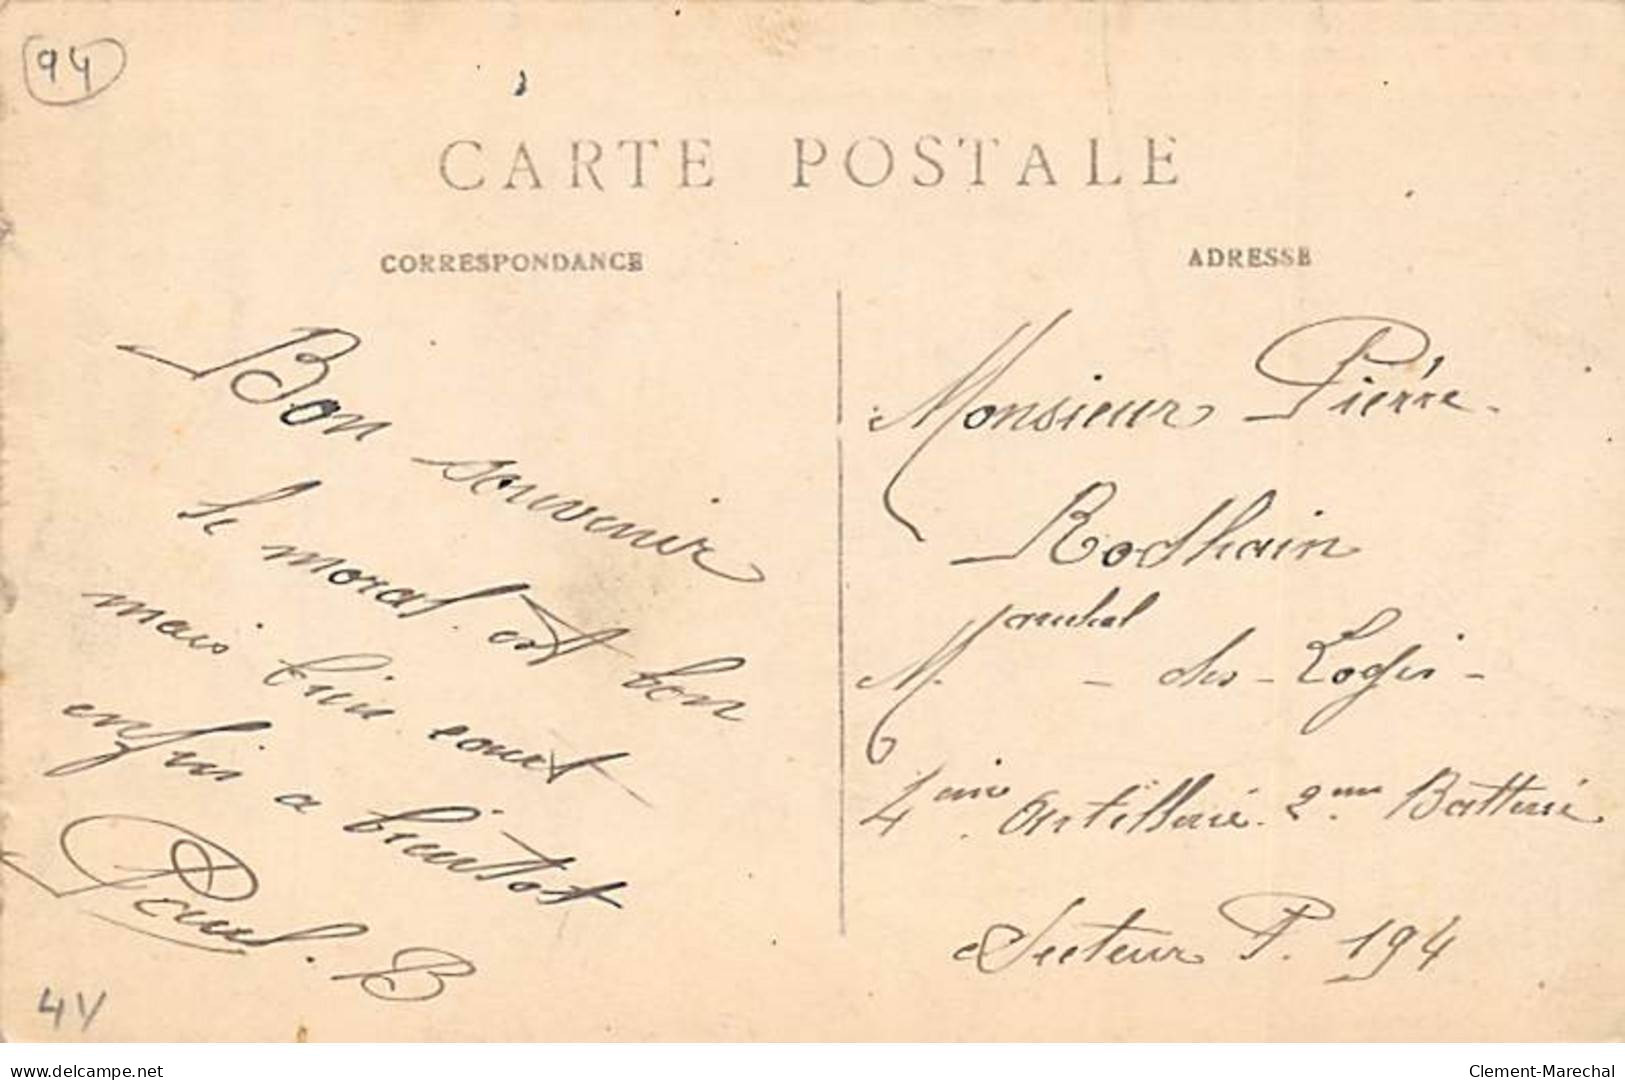 94
CARTE POSTALE
CORRESPONDANCE
Bon souvenir
le moral est bon
mais court
enfin a bientot
Paul. B
4V
ADRESSE
Monsieur Pierre
Rodhain
Marechal - des - Logis -
4eme Artillerie 2.eme Batterie
Secteur P. 194
delcampe.net
Clement-Marechal